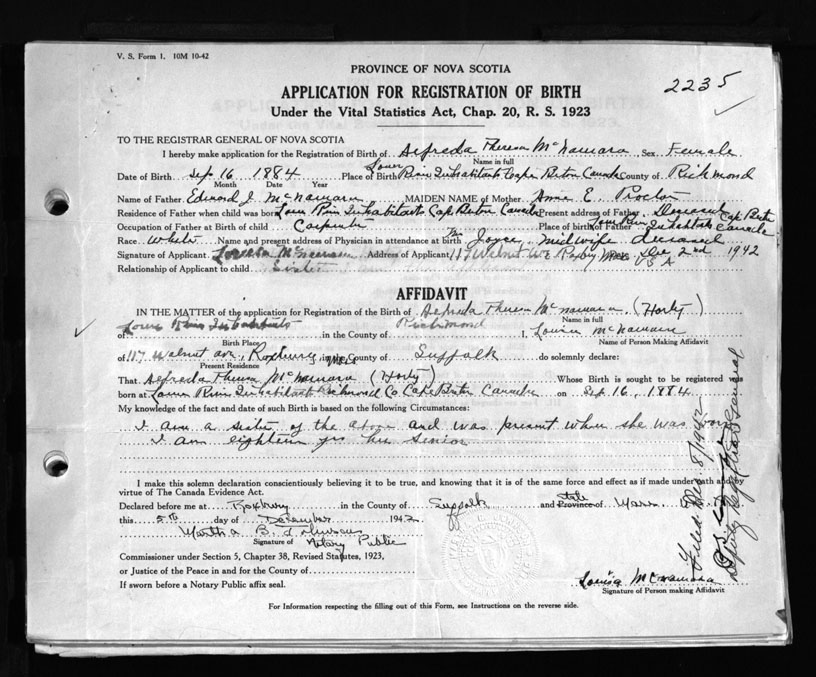 V. S. Form 1. 10M 10-42
PROVINCE OF NOVA SCOTIA
2235
APPLICATION FOR REGISTRATION OF BIRTH
Under the Vital Statistics Act, Chap. 20, R. S. 1923
TO THE REGISTRAR GENERAL OF NOVA SCOTIA
I hereby make application for the Registration of Birth of Alfreda Theresa McNamara Sex Female
Name in full
Date of Birth Sep 16 1884 Place of Birth Lower River Inhabitants Cape Breton Canada County of Richmond
Month Date Year
Name of Father Edmond J. McNamara MAIDEN NAME of Mother Anne E. Proctor
Residence of Father when child was born Lower River Inhabitants Cape Breton Canada Present address of Father Deceased
Occupation of Father at Birth of child Carpenter Place of birth of Father Lower River Inhabitants Cape Breton Canada
Race White Name and present address of Physician in attendance at birth Mrs Joyce, Midwife deceased
Signature of Applicant Louisa McNamara Address of Applicant 117 Walnut Ave Roxbury Mass. Dec 2nd 1942
USA
Relationship of Applicant to child Sister
AFFIDAVIT
IN THE MATTER of the application for Registration of the Birth of Alfreda Theresa McNamara (Horty)
Name in full
of Lower River Inhabitants in the County of Richmond I, Louisa McNamara
Birth Place Name of Person Making Affidavit
of 117 Walnut ave, Roxbury Mass in the County of Suffolk do solemnly declare:
Present Residence
That Alfreda Theresa McNamara (Horty) Whose Birth is sought to be registered was
born at Lower River Inhabitants Richmond Co Cape Breton Canada on Sep 16, 1884
My knowledge of the fact and date of such Birth is based on the following Circumstances:
I am a sister of the above and was present when she was born
I am eighteen yrs her senior
I make this solemn declaration conscientiously believing it to be true, and knowing that it is of the same force and effect as if made under oath and by
virtue of The Canada Evidence Act.
Declared before me at Roxbury in the County of Suffolk and State Province of Mass
this 5th day of December 1942
Martha B.
Signature of Notary Public
Commissioner under Section 5, Chapter 38, Revised Statutes, 1923,
or Justice of the Peace in and for the County of
If sworn before a Notary Public affix seal.
Louisa McNamara
Signature of Person making Affidavit
For Information respecting the filling out of this Form, see Instructions on the reverse side.
Filed Dec. 8/1942
Deputy Registrar General